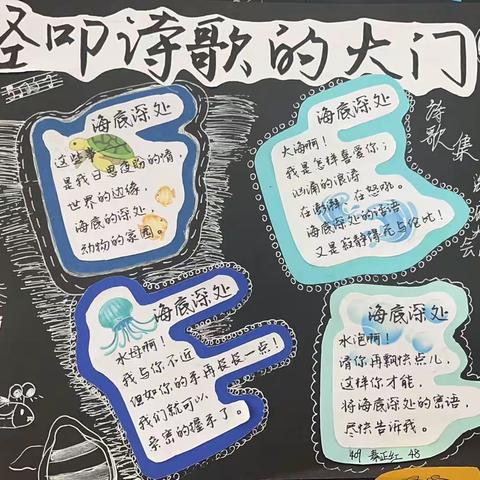 轻叩诗歌的大门
海底深处
是我日思夜盼的情
世界的边缘，
海底的深处，
动物的家园。
海底深处
大海啊！
我是怎样喜爱你；
汹涌的浪涛
在澎湃 在怒吼。
海底深处的话语
又是寂静得无与伦比！
诗歌集
海底深处
水母啊！
我与你不近
但如你的手再长长一点！
我们就可以，
亲密的握手了。
海底深处
水泡啊！
请你再飘快点儿，
这样你才能，
将海底深处的密语，
尽快告诉我。
48